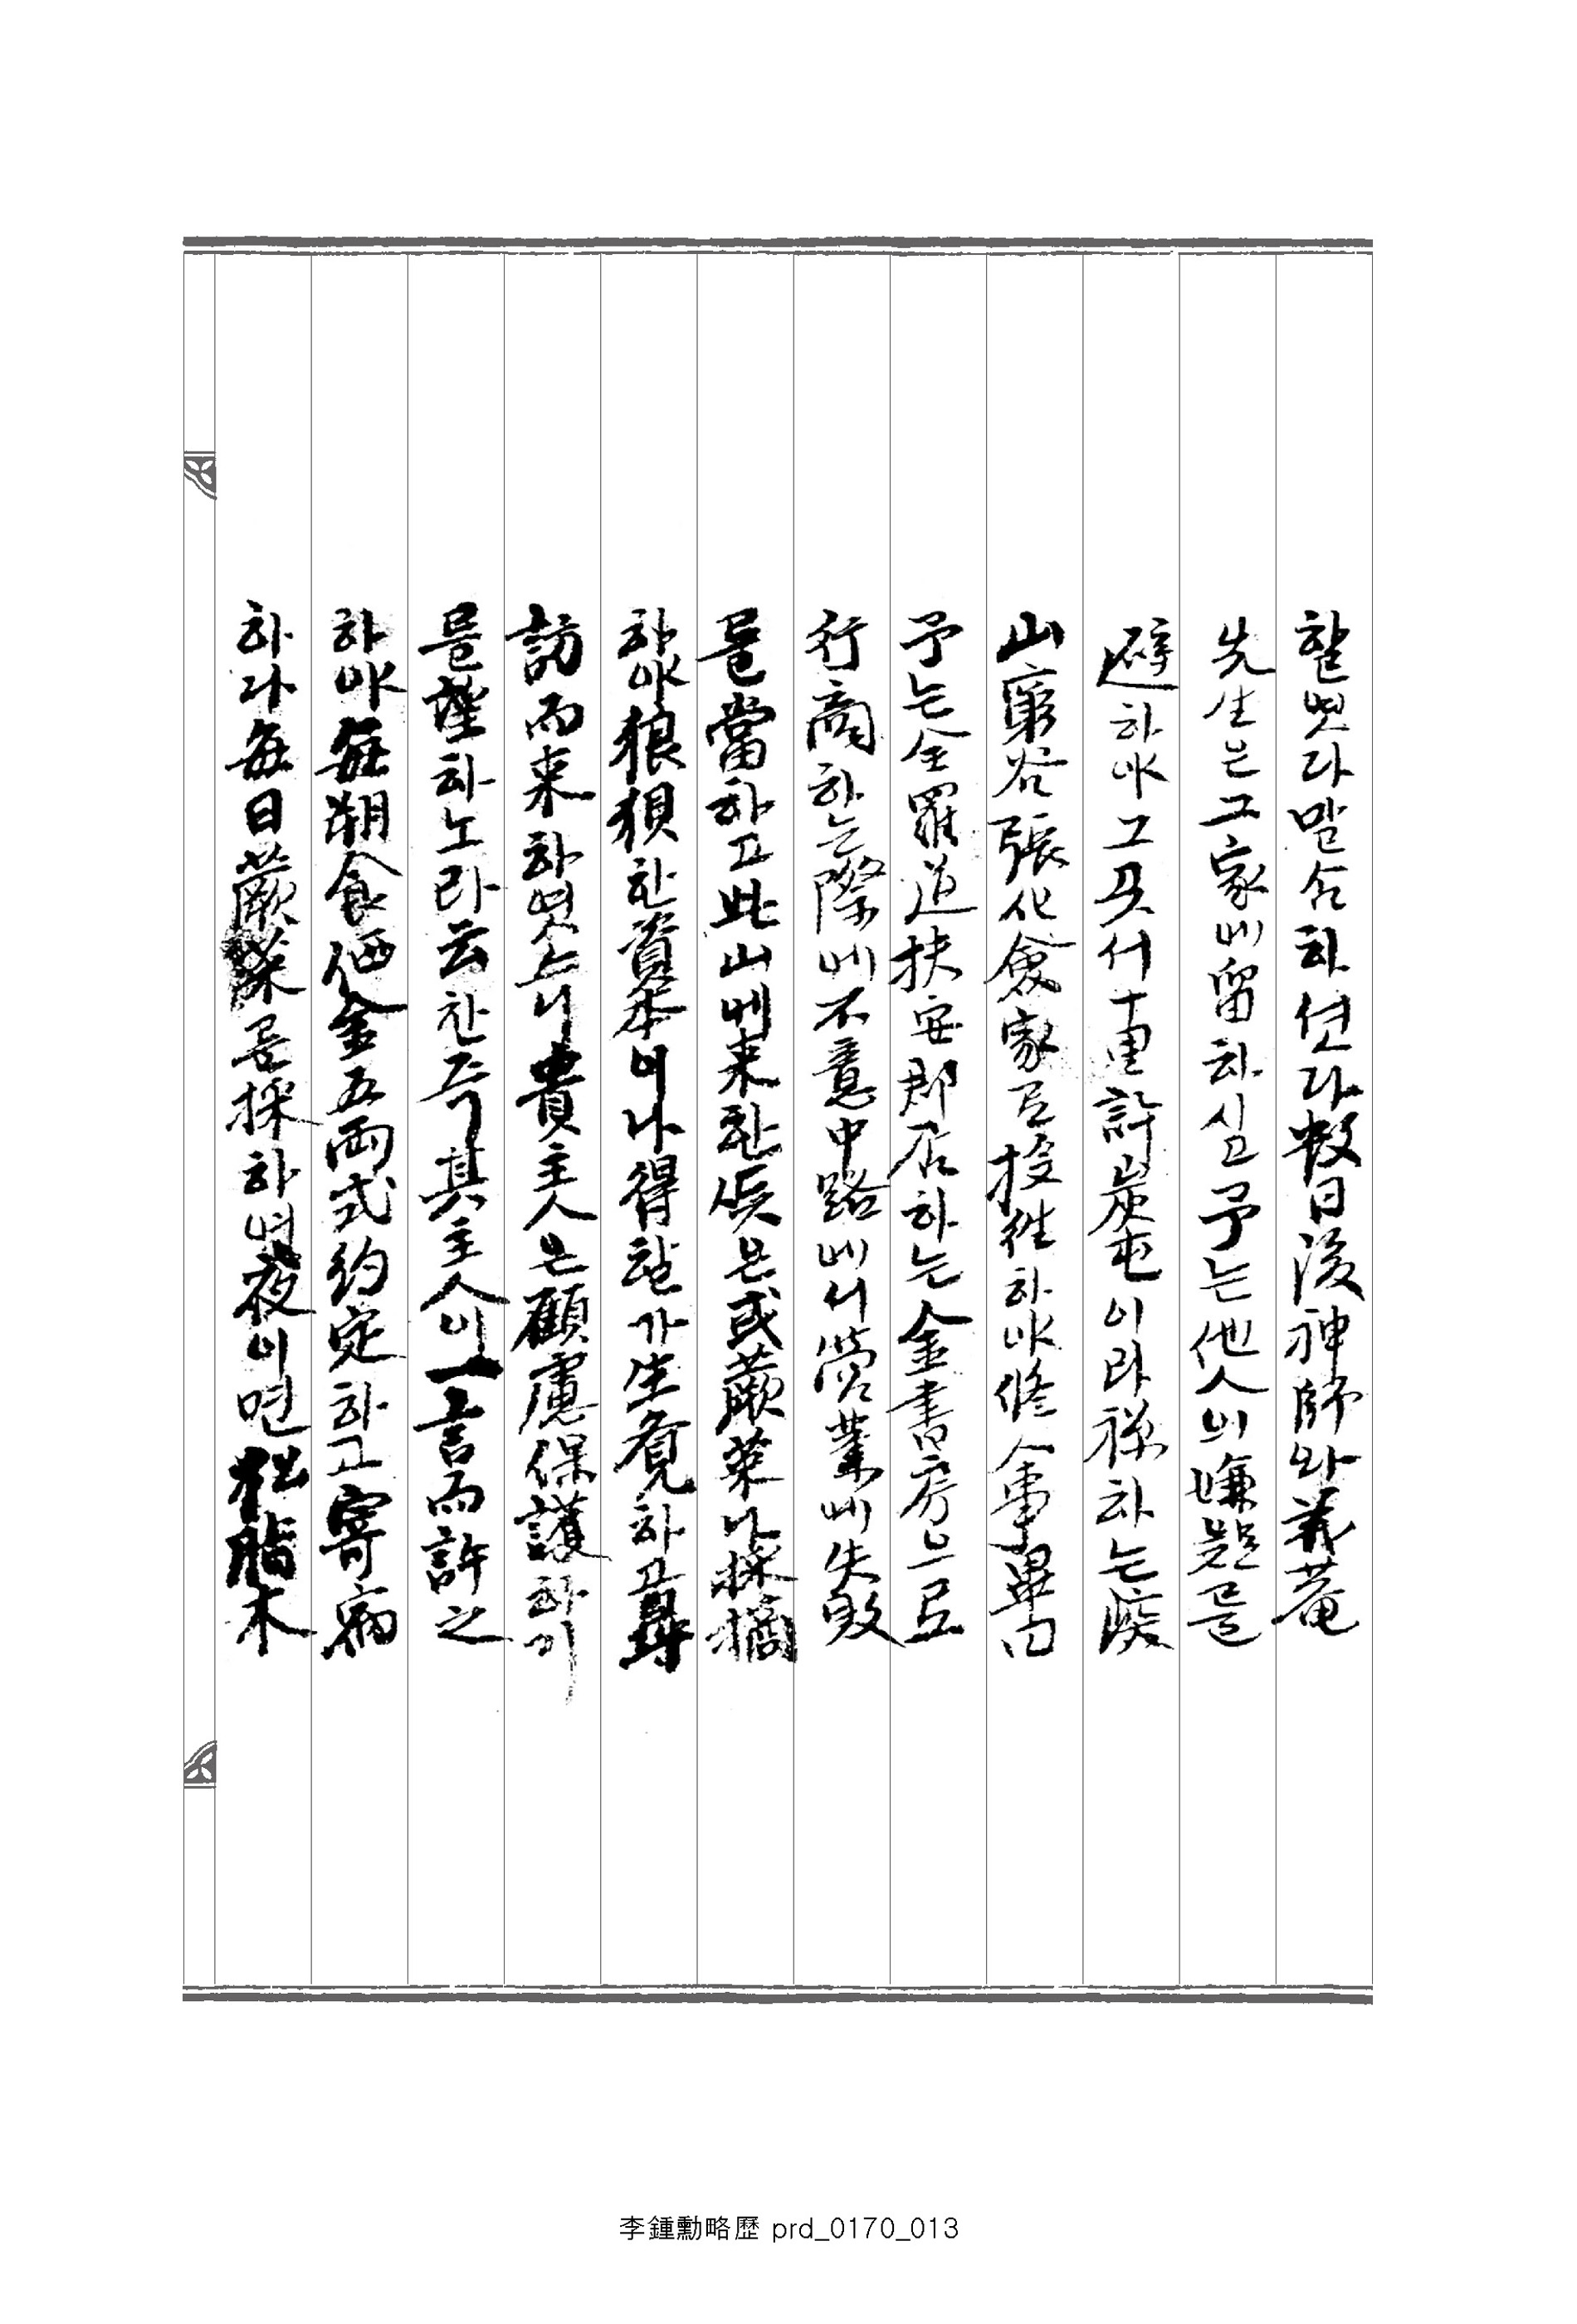 할벗다말슴하섯다数日後神師와義菴
先生은그家에留하시고予는他人의嫌疑를
避하야그곳서十里許炭屯이라稱하는深
山窮谷張化僉家로投往하야修人事畢曰
予는全羅道扶安郡居하는金書房으로
行商하는際에不意中路에서營業에失敗
를當하고此山에來한俟은或蕨菜나採摘
하야狼狽한資本이나得할가生覺하고尋
訪而來하엿스니貴主人은顧慮保護하기
를望하노라云한즉其主人이一言而許之
하야每朔食価金五両式約定하고寄宿
하다每日蕨菜를採하며夜이면松脂木
李鍾勳略歷 prd_0170_013